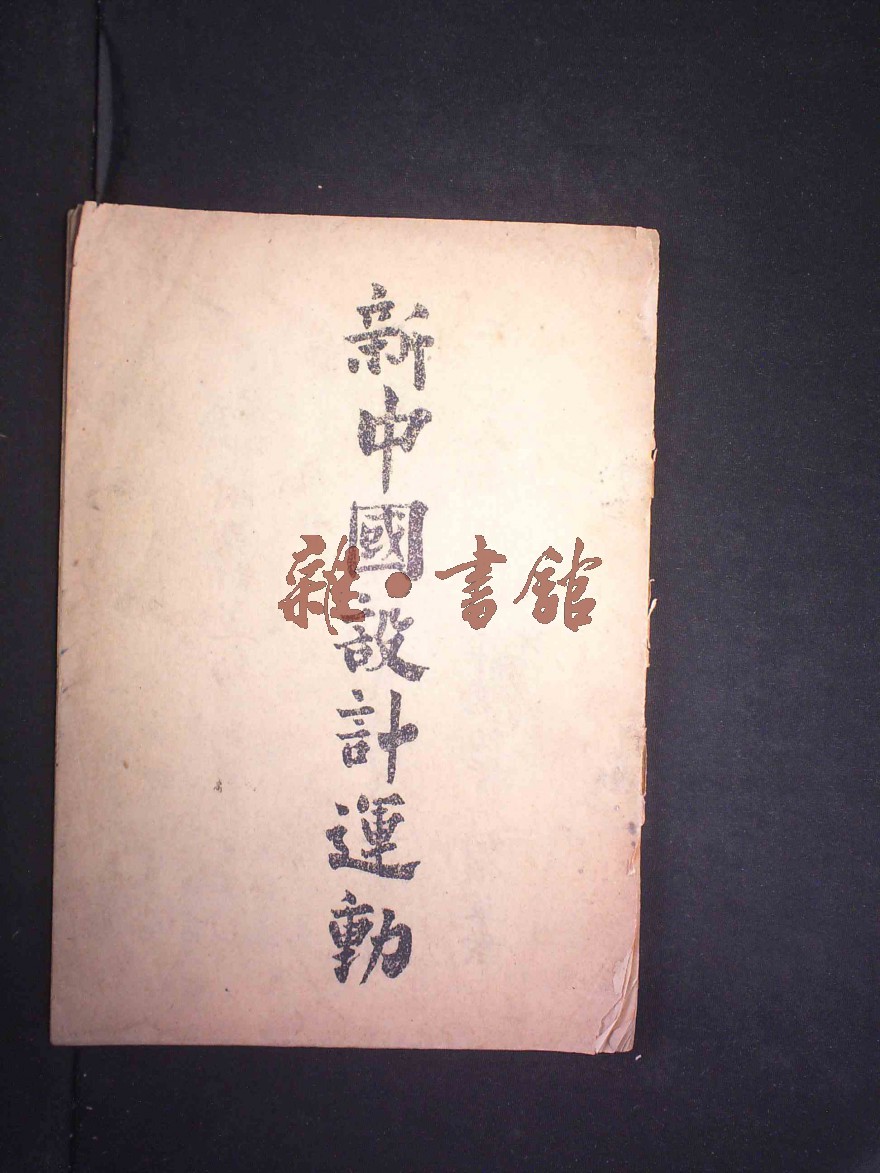 新中國設計運動
雜·書館